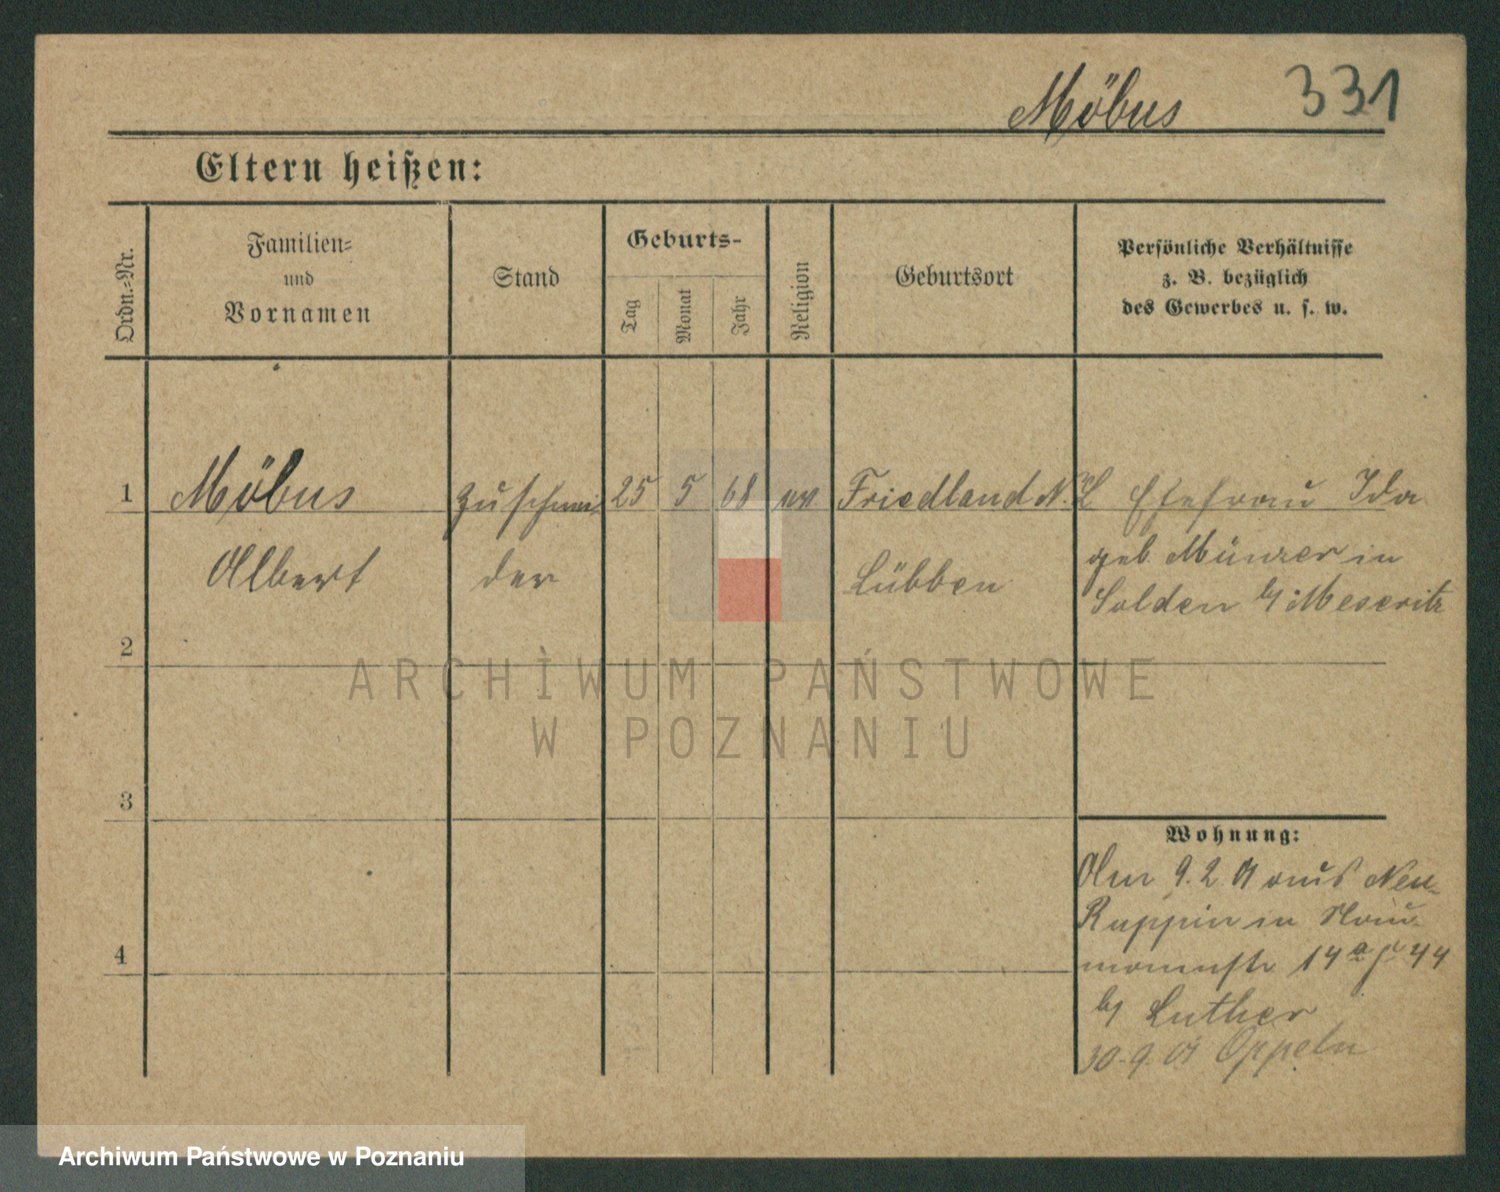 Möbus 331
Eltern heißen:
Ordn.-Nr.
Familien-
und
Vornamen
Stand
Geburts-
Tag
Monat
Jahr
Religion
Geburtsort
Persönliche Verhältnisse
z. B. bezüglich
des Gewerbes u. s. w.
1 Möbus Zuschnei 25 5 68 ev. Friedland N. L Ehefrau Ida
Albert der Lübben geb. Münzer in
Solden b/ Meseritz
2
ARCHIWUM PAŃSTWOWE
W POZNANIU
3
Wohnung:
Am 9. 2. 01 aus Neu-
Ruppin in
14a 44
4
b/ Luther
30.9.01 Oppeln
Archiwum Państwowe w Poznaniu